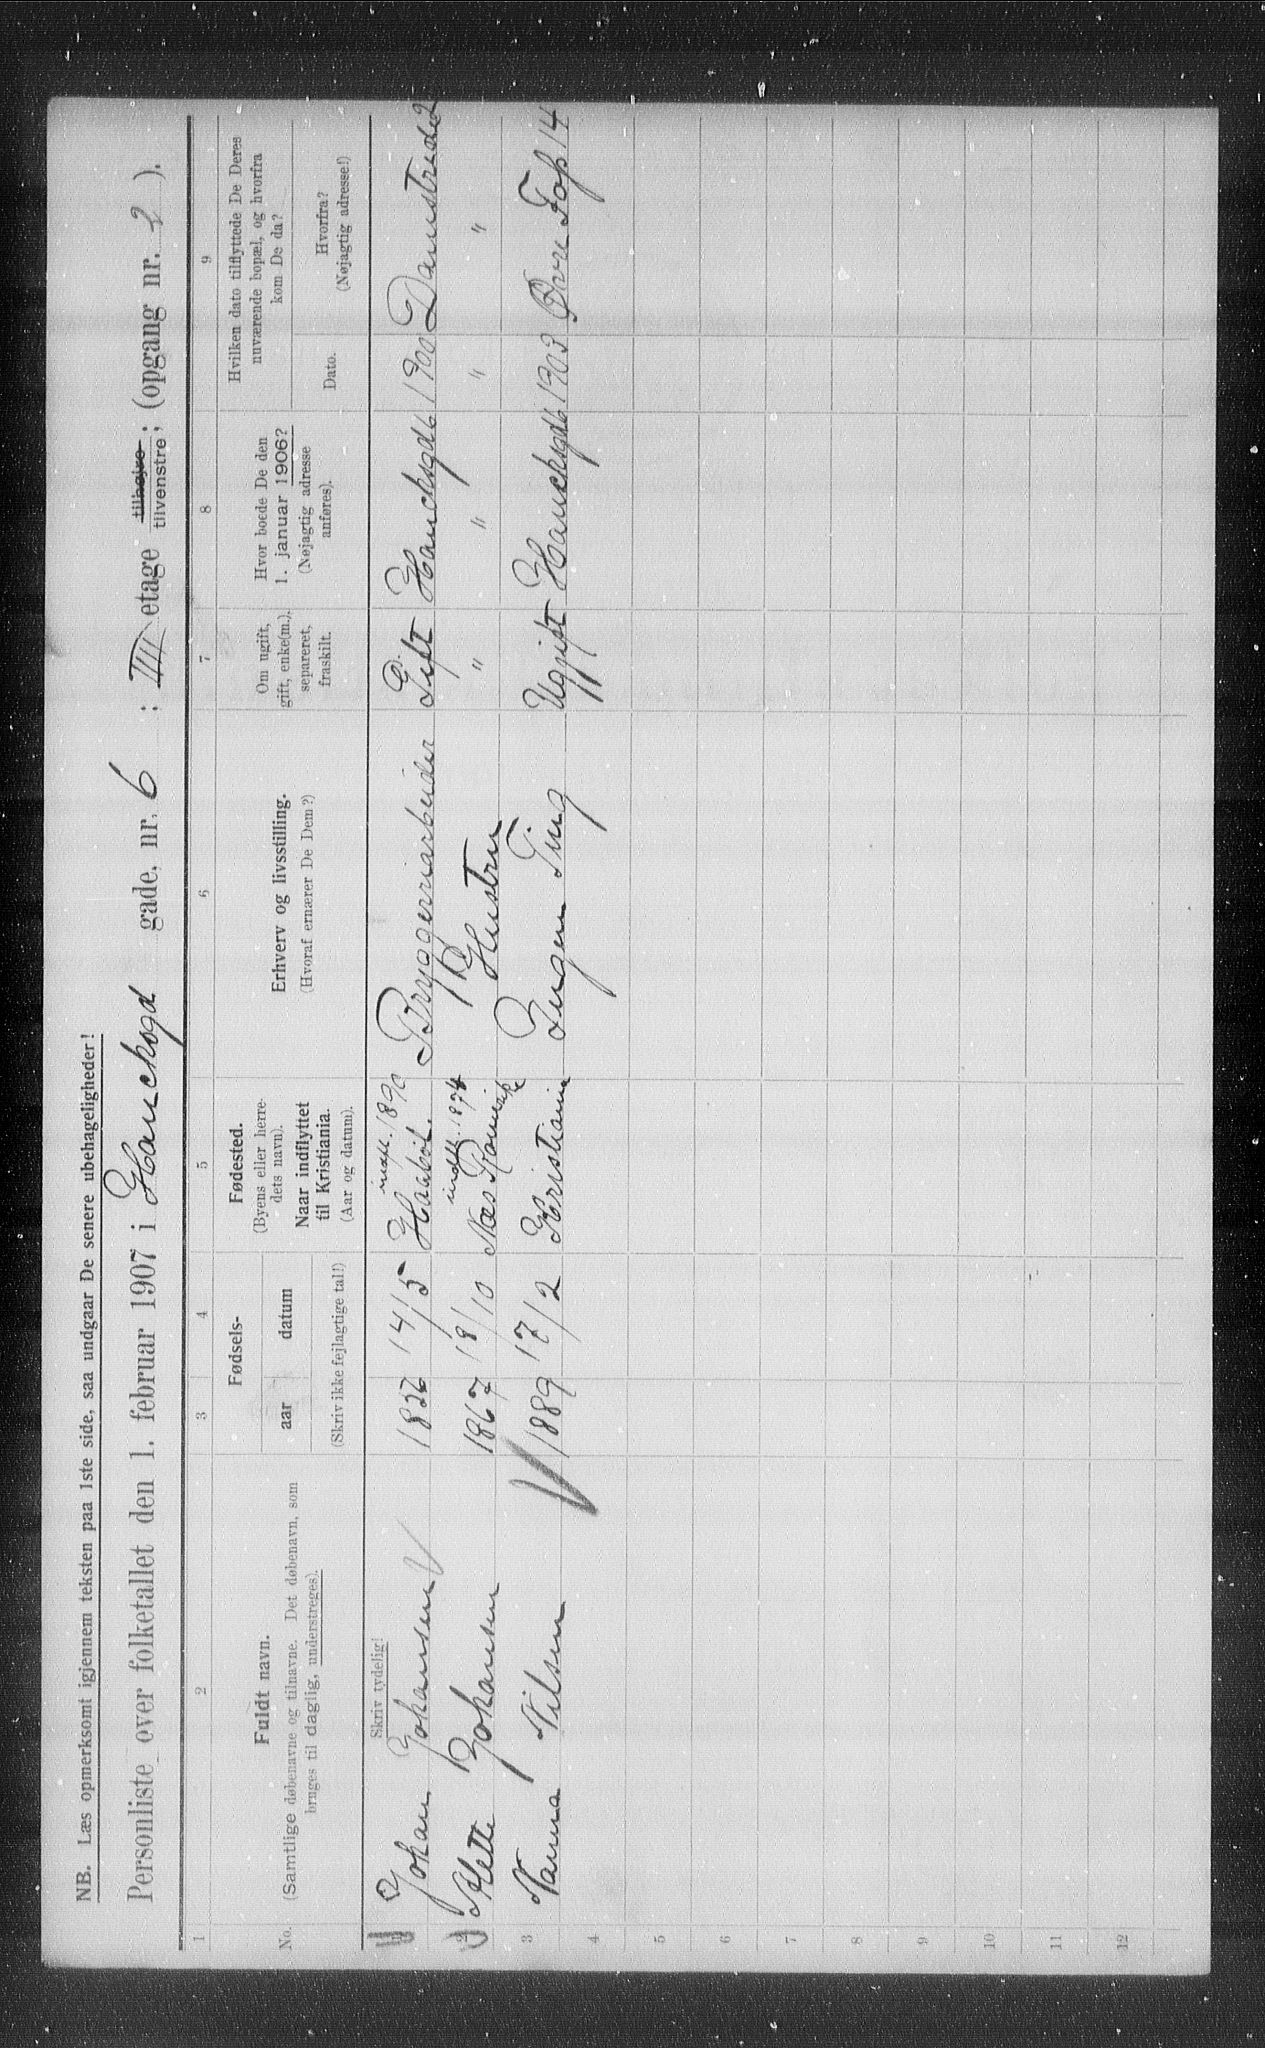 NB. Læs opmerksomt igjennem teksten paa 1ste side, saa undgaar De senere ubehageligheder!
Personliste over folketallet den 1. februar 1907 i Hauchsgd gade, nr. 6 : IIII etage tilhøjre tilvenstre; (opgang nr. 2 ).
1 2 3 4 5 6 7 8 9
No.
Fuldt navn.
(Samtlige døbenavne og tilnavne. Det døbenavn, som
bruges til daglig, understreges).
Fødsels-
aar datum
(Skriv ikke fejlagtige tal!)
Fødested.
(Byens eller herre-
dets navn).
Naar indflyttet
til Kristiania.
(Aar og datum).
Erhverv og livsstilling.
(Hvoraf ernærer De Dem?)
Om ugift,
gift, enke(m.),
separeret,
fraskilt.
Hvor boede De den
1. januar 1906?
(Nøjagtig adresse
anføres).
Hvilken dato tilflyttede De Deres
nuværende bopæl, og hvorfra
kom De da?
Dato.
Hvorfra?
(Nøjagtig adresse!)
Skriv tydelig!
indfl. 1890
1 Johan Johansen 1856 14/5 Haabøl. Bryggeriarbeider Gift Hauchsgd 6 1900 Damstredet 2
indfl. 1874
2 Mette Johansen 1867 18/10 Næs Romerike Hustru " " " "
3 Nanna Nilsen 1889 17/2 Kristiania Ingen Ting Ugift Hauchsgd 6 1903 Øvre Foss 14
4
5
6
7
8
9
10
11
12